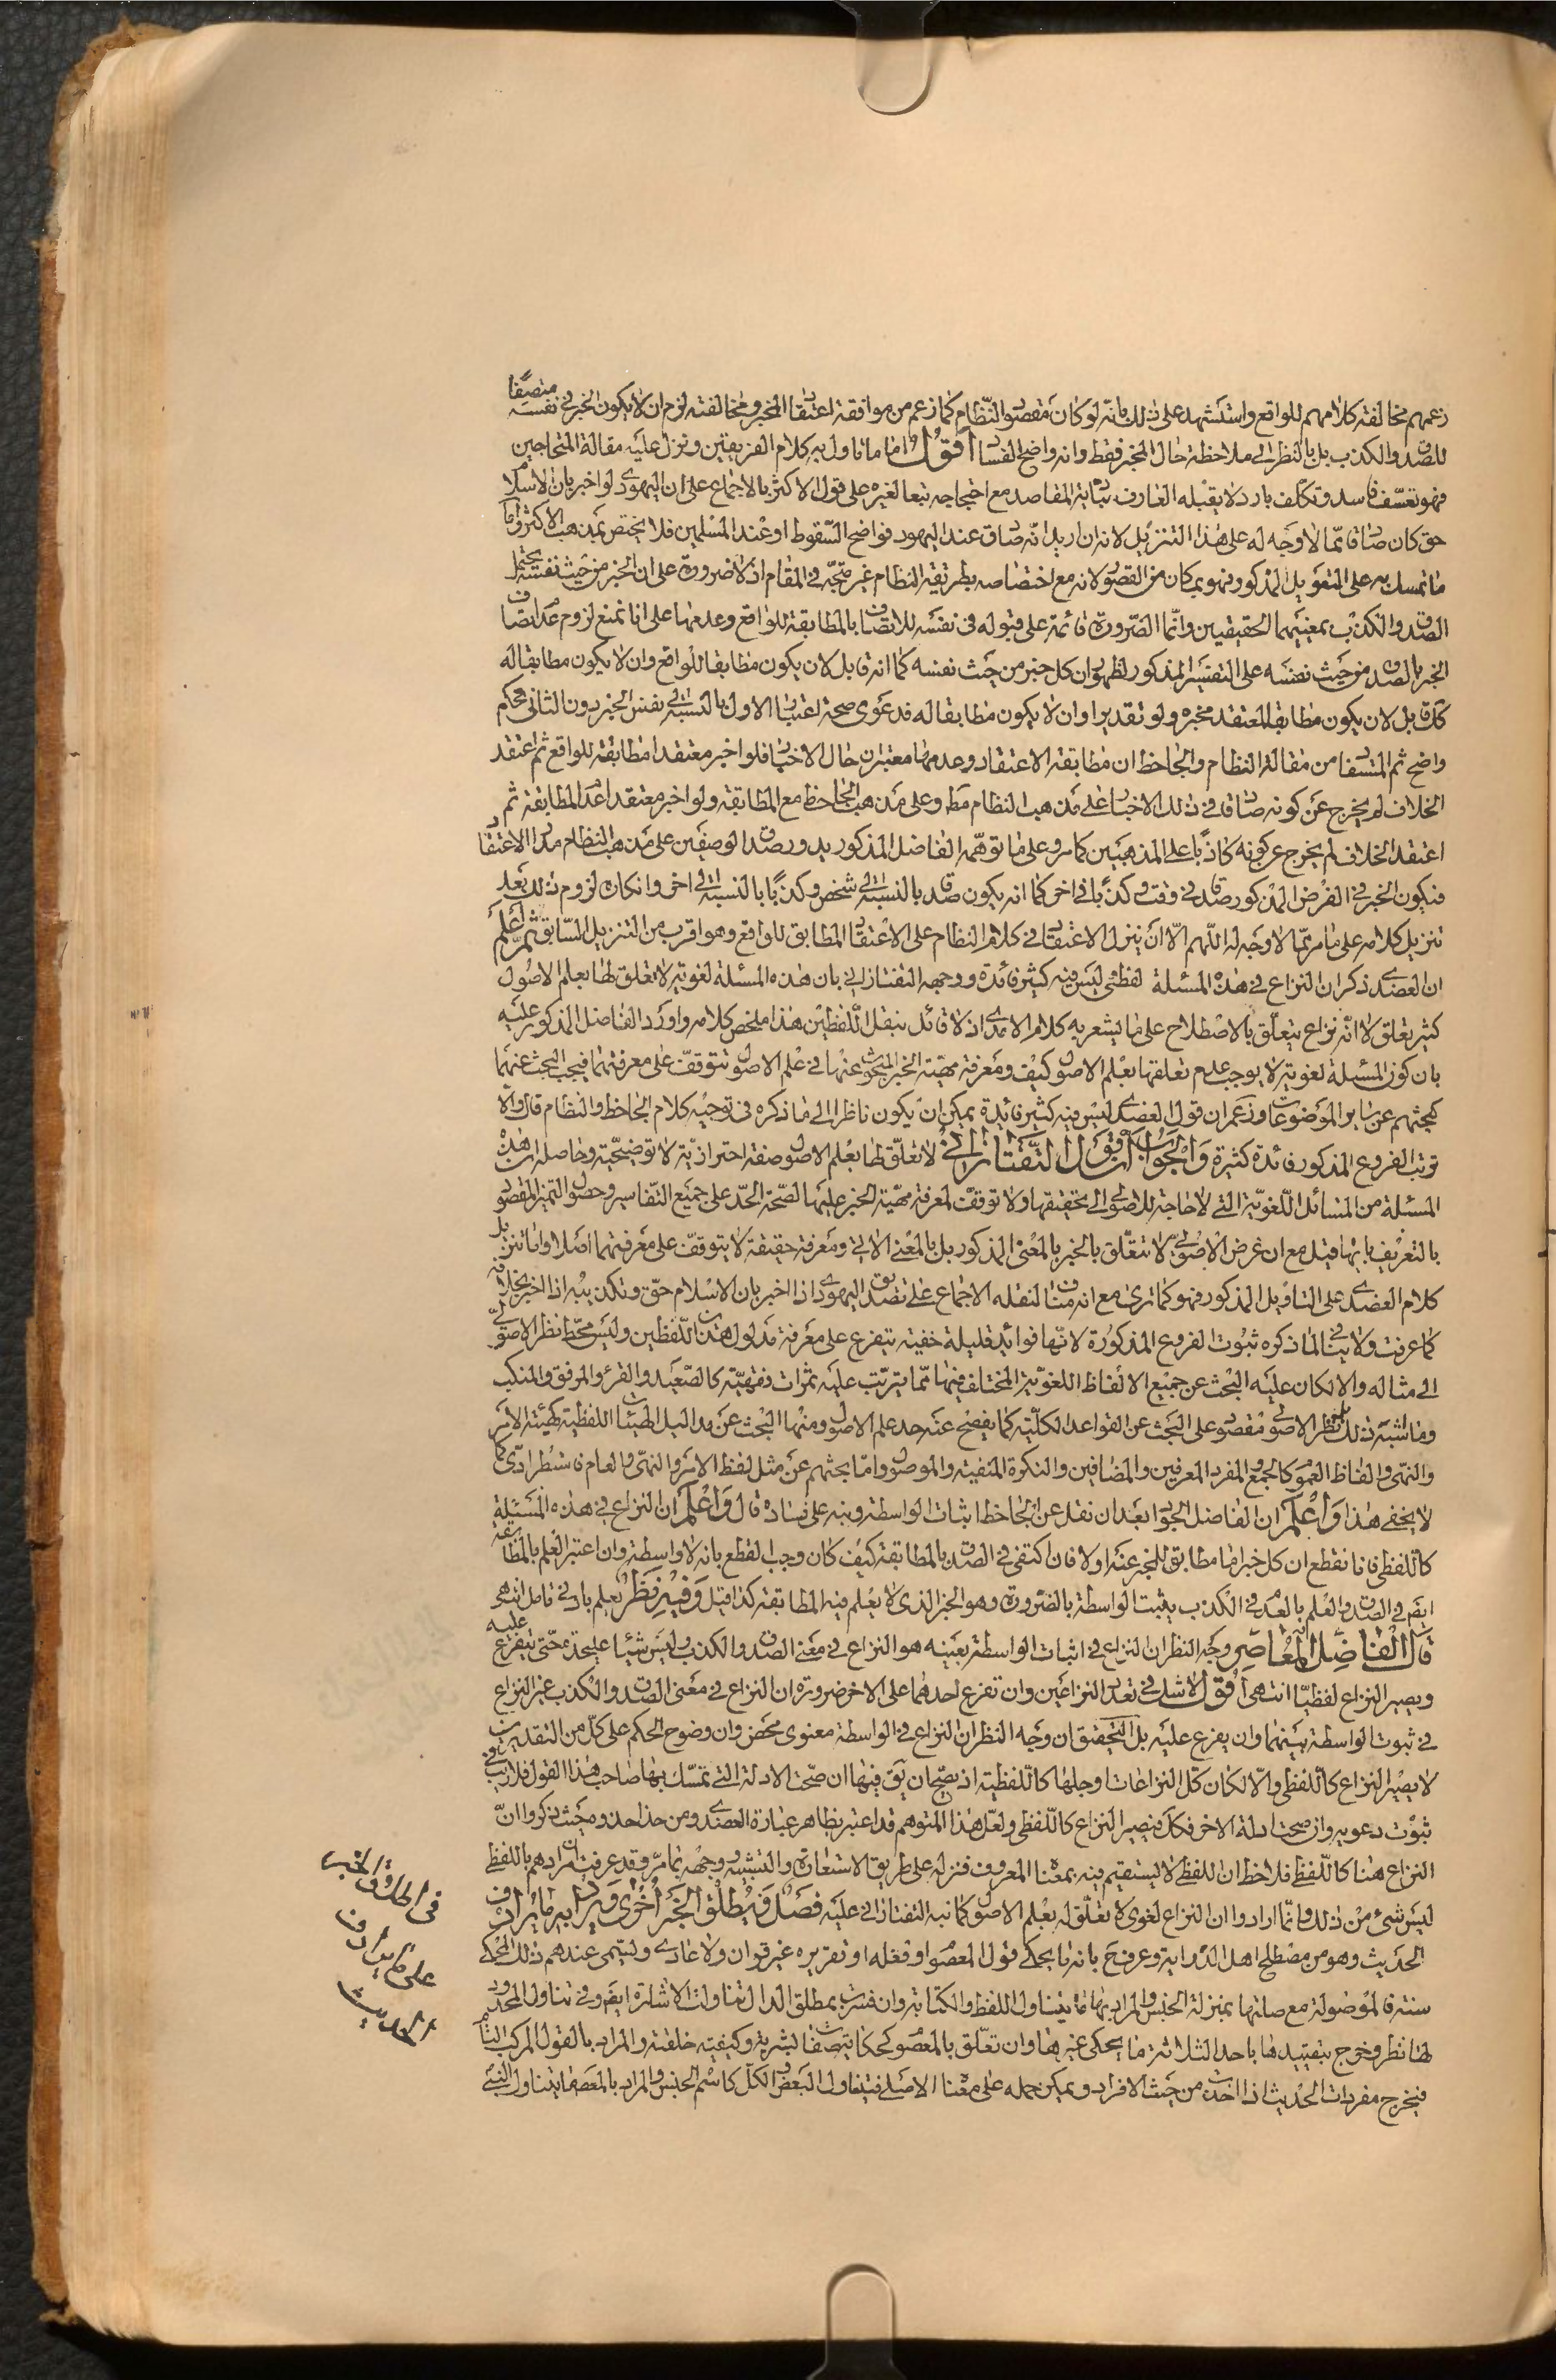 زعمهم مخالفة كلامهم للواقع واستشهد على ذلك بانه لو كان مقصود النظام كما زعم من موافقة اعتقاد المخبر ومخالفته لزم ان لا يكون الخبر في نفسه متصفا
للصدق والكذب بل بالنظر الى ملاحظة حال المخبر فقط وانه واضح الفساد اقول اما ما تاول به كلام الفريقين ونزل عليه مقالة المتحاجين
فهو تعسف فاسد وتكلف بارد لا يقبله العارف بتادية المقاصد مع احتجاجه تبعا لغيره على قول الاكثر بالاجماع على ان اليهودي لو اخبر بان الاسلام
حق كان صادقا مما لا وجه له على هذا التنزيل لانه ان اريد انه صادق عند اليهود فواضح السقوط او عند المسلمين فلا يختص بمذهب الاكثر واما
ما تمسك به على التعويل المذكور فهو بمكان من القصور لانه مع اختصاصه بطريقة النظام غير متجه في المقام اذ لا ضرورة على ان الخبر من حيث نفسه يحتمل
الصدق والكذب بمعنييهما الحقيقيين وانما الضرورة قائمة على قبوله في نفسه للاتصاف بالمطابقة للواقع وعدمها على انا نمنع لزوم عدم اتصاف
الخبر بالصدق من حيث نفسه على التفسير المذكور لظهور ان كل خبر من حيث نفسه كما انه قابل لان يكون مطابقا للواقع وان لا يكون مطابقا له
كك قابل لان يكون مطابقا لمعتقد مخبره ولو تقديرا وان لا يكون مطابقا له فدعوى صحة اعتبار الاول بالنسبة الى نفس الخبر دون الثاني تحكم
واضح ثم المستفاد من مقالة النظام والجاحظ ان مطابقة الاعتقاد وعدمها معتبران حال الاخبار فلو اخبر معتقدا مطابقته للواقع ثم اعتقد
الخلاف لم يخرج عن كونه صادقا في ذلك الاخبار على مذهب النظام مط وعلى مذهب الجاحظ مع المطابقة ولو اخبر معتقدا عدم المطابقة ثم
اعتقد الخلاف لم يخرج عن كونه كاذبا على المذهبين كما مر وعلى ما توهمه الفاضل المذكور يدور صدق الوصفين على مذهب النظام مدار الاعتقاد
فيكون الخبر في الفرض المذكور صادقا في وقت وكذبا في اخر كما انه يكون صادقا بالنسبة الى شخص وكذبا بالنسبة الى اخر وانكان لزوم ذلك بعد
تنزيل كلامه على ما مر مما لا وجه له اللهم الا ان ينزل الاعتقاد في كلام النظام على الاعتقاد المطابق للواقع وهو اقرب من التنزيل السابق ثم اعلم
ان العضدي ذكر ان النزاع في هذه المسئلة لفظي وليس فيه كثير فائدة ووجهه التفتازاني بان هذه المسئلة لغوية لا تعلق لها بعلم الاصول
كثير تعلق لا انه نزاع يتعلق بالاصطلاح على ما يشعر به كلام الامدي اذ لا قائل بنقل اللفظين هذا ملخص كلامه واورد الفاضل المذكور عليه
بان كون المسئلة لغوية لا يوجب عدم تعلقها بعلم الاصول كيف ومعرفة مهية الخبر المبحوث عنها في علم الاصول تتوقف على معرفتهما فيجب البحث عنهما
كبحثهم عن ساير الموضوعات وزعم ان قول العضدي ليس فيه كثير فائدة يمكن ان يكون ناظرا الى ما ذكره في توجيه كلام الجاحظ والنظام قال والا
ترتب الفروع المذكورة فائدة كثيرة والجواب ان قول التفتازاني لا تعلق لها بعلم الاصول صفة احترازية لا توضيحية وحاصله ان هذه
المسئلة من المسائل اللغوية التي لا حاجة للاصولي الى تحقيقها ولا توقف لمعرفة مهية الخبر عليها لصحة الحد على جميع التفاسير وحصول التميز المقصود
بالتعريف بايها قيل مع ان غرض الاصولي لا تتعلق بالخبر بالمعنى المذكور بل بالمعنى الاتي ومعرفة حقيقته لا يتوقف على معرفتهما اصلا واما تنزيل
كلام العضدي على التاويل المذكور فهو كما ترى مع انه مناف لنقله الاجماع على تصديق اليهودي اذا اخبر بان الاسلام حق وتكذيبه اذا اخبر بخلافه
كما عرفت ولا ينافي لما ذكره ثبوت الفروع المذكورة لانها فوائد قليلة خفية يتفرع على معرفة مدلول هذين اللفظين وليس محط نظر الاصولي
الى مثاله والا لكان عليه البحث عن جميع الالفاظ اللغوية المختلف فيها مما يترتب عليه ثمرات فقهية كالصعيد والقرء والمرفق والمنكب
وما اشبه ذلك بل نظر الاصولي مقصور على البحث عن القواعد الكلية كما يفصح عنه حد علم الاصول ومنها البحث عن مداليل الهيئات اللفظية كهيئة الامر
والنهي والفاظ العموم كالجمع والمفرد المعرفين والمضافين والنكرة المنفية والموصول واما بحثهم عن مثل لفظ الامر والنهي والعام فاستطرادي كما
لا يخفى هذا واعلم ان الفاضل الجواد بعد ان نقل عن الجاحظ اثبات الواسطة ونبه على فساده قال واعلم ان النزاع في هذه المسئلة
كاللفظي فانا نقطع ان كل خبر اما مطابق للمخبر عنه اولا فان اكتفى في الصدق بالمطابقة كيف كان وجب القطع بانه لا واسطة وان اعتبر العلم بالمطابقة
ايضا في الصدق والعلم بالعدم في الكذب يثبت الواسطة بالضرورة وهو الخبر الذي لا يعلم فيه المطابقة كذا قيل وفيه نظر يعلم بادنى تامل انتهى
قال الفاضل المعاصر وجه النظر ان النزاع في اثبات الواسطة بعينه هو النزاع في معنى الصدق والكذب وليس شيئا عليحدة حتى يتفرع عليه
ويصير النزاع لفظيا انتهى اقول لا شك في تعدد النزاعين وان تفرع احدهما على الاخر ضرورة ان النزاع في معنى الصدق والكذب غير النزاع
في ثبوت الواسطة بينهما وان يفرع عليه بل التحقيق ان وجه النظر ان النزاع في الواسطة معنوي محض وان وضوح الحكم على كل من التقديرين
لا يصير النزاع كاللفظي والا لكان كل النزاعات او جلها كاللفظية اذ يصح ان يق فيها ان صحت الادلة التي تمسك بها صاحب هذا القول فلا ريب في
ثبوت دعويه وان صحت ادلة الاخر فكك فيصير النزاع كاللفظي ولعل هذا المتوهم قد اغتر بظاهر عبارة العضدي ومن حذا حذوه حيث ذكروا ان
النزاع هنا كاللفظي فلاحظ ان اللفظي لا يستقيم فيه بمعناه المعروف فنزله على طريق الاستعارة والتشبيه ووجهه بما مر وقد عرفت ان مرادهم باللفظي
ليس شئ من ذلك وانما ارادوا ان النزاع لغوي لا تعلق له بعلم الاصول كما نبه التفتازاني عليه فصل قد يطلق الخبر اخرى ويراد به ما يرادف
الحديث وهو من مصطلح اهل الدراية وعرف ح بانه ما يحكي قول المعصوم او فعله او تقريره غير قران ولا عادي ويسمى عندهم ذلك المحكي
سنة فالموصولة مع صلتها بمنزلة الجنس والمراد بها ما يتناول اللفظ والكتابة وان فسرت بمطلق الدال تناولت الاشارة ايضا وفي تناول المحدود
لها نظر وخرج بتقييدها باحد الثلاثة ما يحكي غيرها وان تعلق بالمعصوم كحكاية صفاته البشرية وكيفية خلقته والمراد بالقول المركب التام
فيخرج مفردات الحديث اذا اخذت من حيث الافراد ويمكن حمله على معناه الاصلي فيتناول البعض والكل كاسم الجنس والمراد بالمعصوم ما يتناول النبي
في اطلاق الخبر
على ما يرادف
الحديث